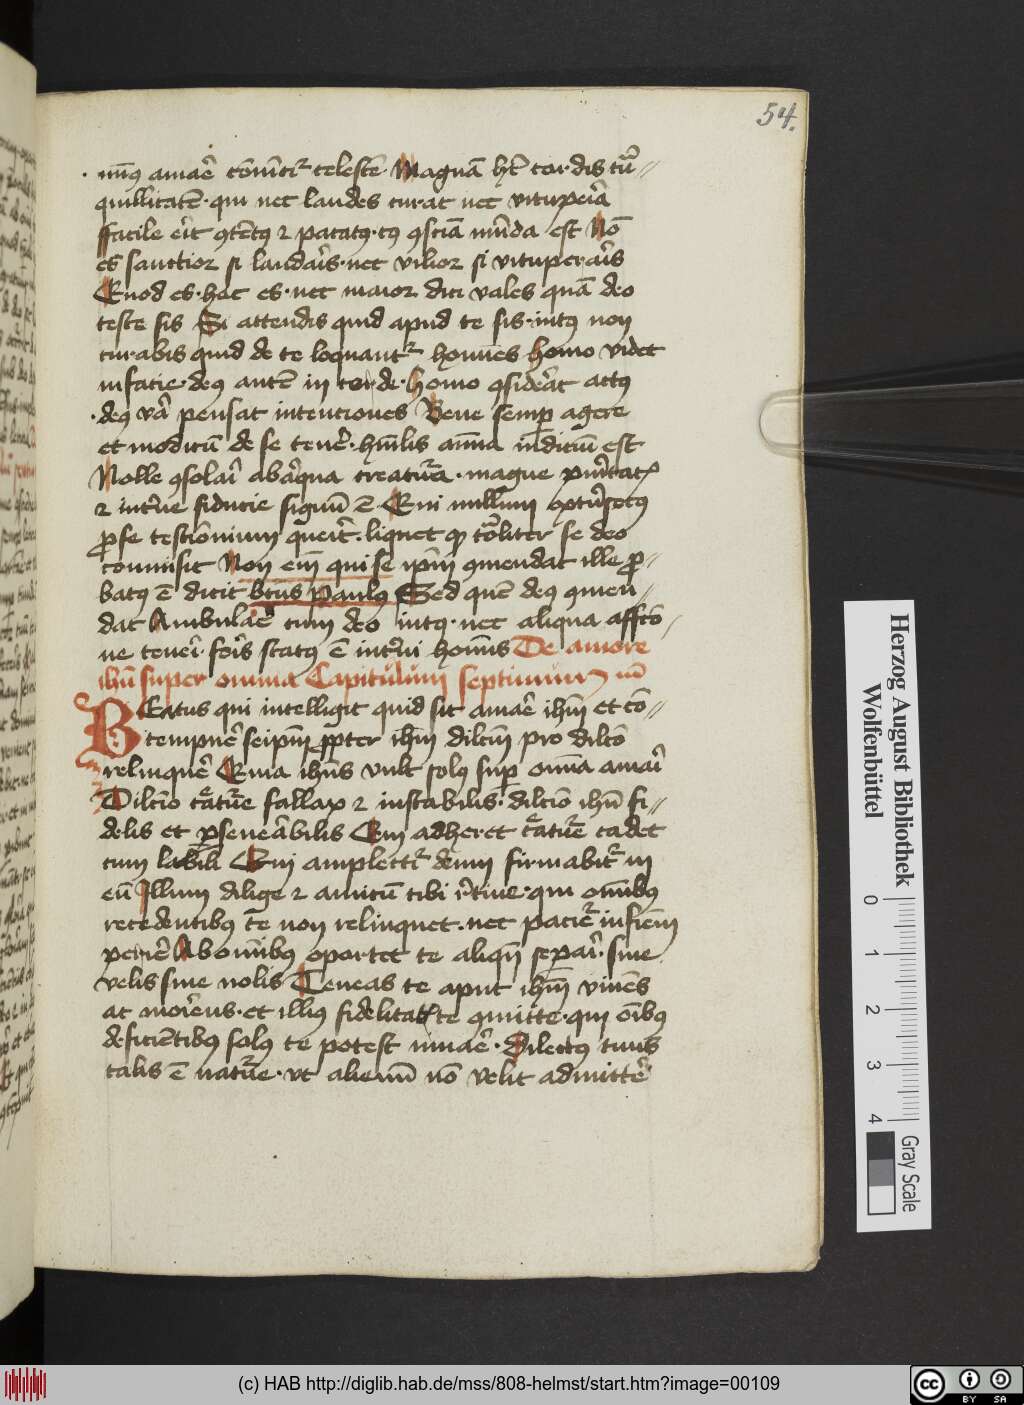 54.
mꝰ amaē co͞mitt᷑ celeste͞ Magna͞ h͞t cor·dis t͞ra//
quillitate͞·qui nec laudes curat nec vitupe͛ia
ffacile e͛it ꝯte͞tꝰ ⁊ pacatꝰ·cꝰ ꝯscia͞ mu͞da est No͞
es sanctior si landa͛is·nec vilior si vitupera͛is
Quod es·hoc es·nec maior dici vales qua͞ deo
teste sis Si attendis quid apud te sis·intꝰ non
curabis quid de te loquant᷑ homi͞es homo videt
in facie·deꝰ aute͞ in corde·homo ꝯside͛at actꝰ
·deꝰ v͛o pensat intenciones Bene semꝑ agere
et modicu͞ de se tene͛·hu͞ilis a͞ia indiciu͞ est·
Nolle ꝯsola͛i ab a͛qua creatu͛a·magne pu͛itatꝭ
⁊ int͛ne fiducie signu͞ e͞ Qui nullum ext͛insecꝰ
ꝓ se testi͞onium que͛it·liquet ꝙ to͞liter se deo
commisit Non e͞i͞ qui se ip͞m ꝯmendat ille ꝓ-//
batꝰ e͞ dicit bt͞us Paulꝰ Sed que͞ deꝰ ꝯmen//
dat Ambula͛e cum deo intꝰ·nec aliqua affc͞o-//
ne tene͛i·fo͛is statꝰ e͞ int͛ni homi͞s De amore
ihu͞ super omnia Capitulum septimum m͞
BEatus qui intelligit quid sit ama͛e ihm͞ et co͞-//
tempne͛e seip͞m ꝓpter ihm͞ dilc͞m pro dilc͞o
relinque͛e Quia ihu͞s vult solꝰ suꝑ omnia ama͛i
Dilc͞io c͛atu͛e fallax ⁊ instabilis·dilc͞io ihu͞ fi-//
delis et ꝑseue͛abilis Qui adheret c͛atu͛e cadet
cum labili Qui amplectit᷑ deum firmabit᷑ in
eu͞ Illum dilige ⁊ amicu͞ tibi r͛tine·qui om͞ibꝰ
recedentibꝰ te non relinquet·nec paciet᷑ in fine͞
peri͛e Ab omi͞bꝰ oportet te aliqn͞ sepa͛i·siue
velis siue nolis Teneas te aput ihm͞ viue͞s
ac mo͛iens·et illiꝰ fidelitatꝭ te ꝯmitte·qui oi͞bꝰ
deficie͞tibꝰ solꝰ te potest iuua͛e·Dilectus tuus
talis e͞ natu͛e·vt alienu͞ no͞ velit admitte͛e
Herzog August Bibliothek
Wolfenbüttel
0 1 2 3 4
Gray Scale
(c) HAB http://diglib.hab.de/mss/808-helmst/start.htm?image=00109
cc BY SA